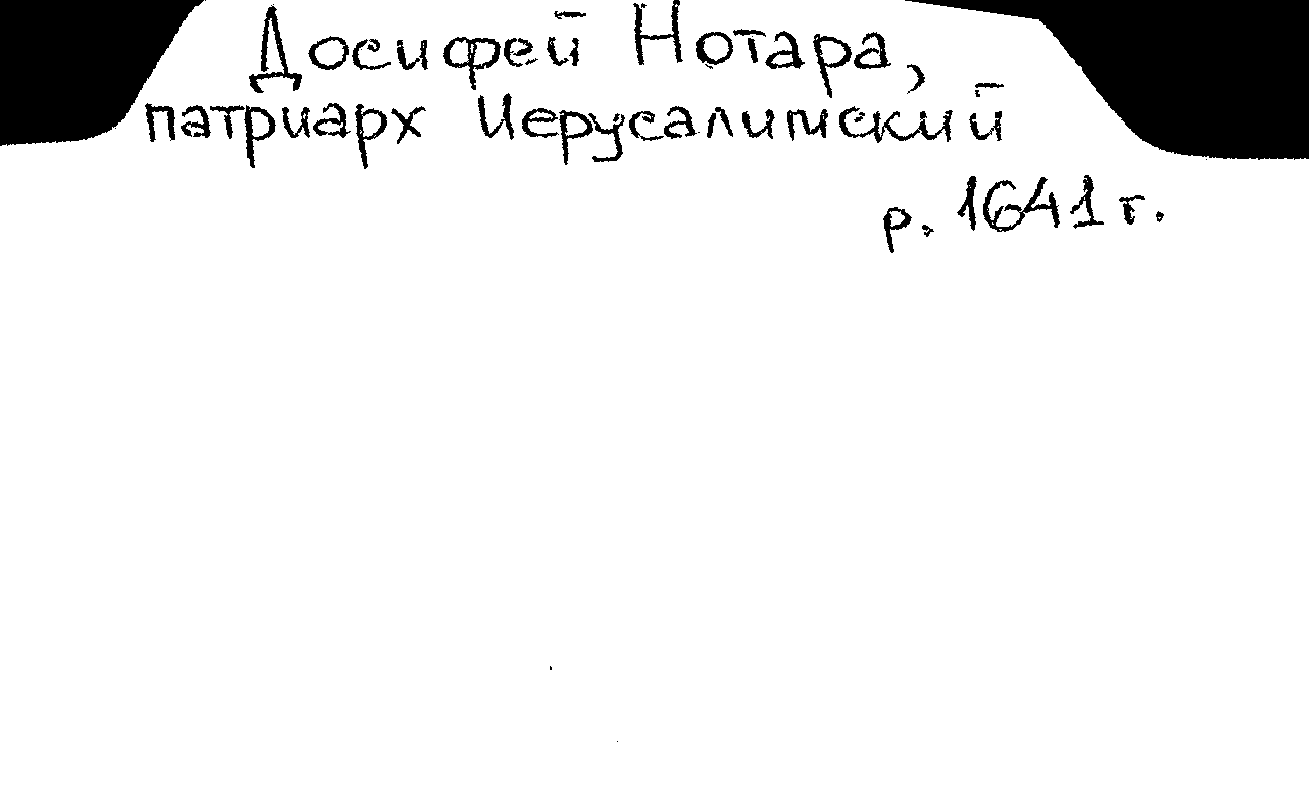 Досифей Нотара,
патриарх Иерусалимский
р. 1641 г.